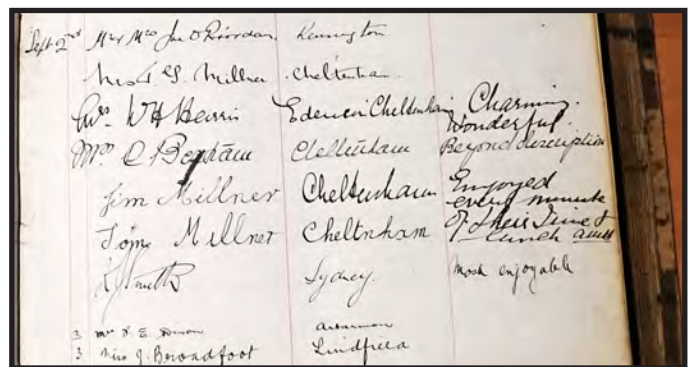 Sept 2nd Mr & Mrs Jno O'Riordan. Kennington.
Mrs T. G. Millner. Cheltenham.
Mrs. W H Harris Cheltenham Charming.
Wonderful.
Mrs C Cheltenham Beyond description
Jim Millner Cheltenham Enjoyed
every minute
Tom Millner Cheltnham of their time &
lunch
Smith Sydney. Most enjoyable
3 Mrs E.
3. Miss J. Broadfoot Lindfield